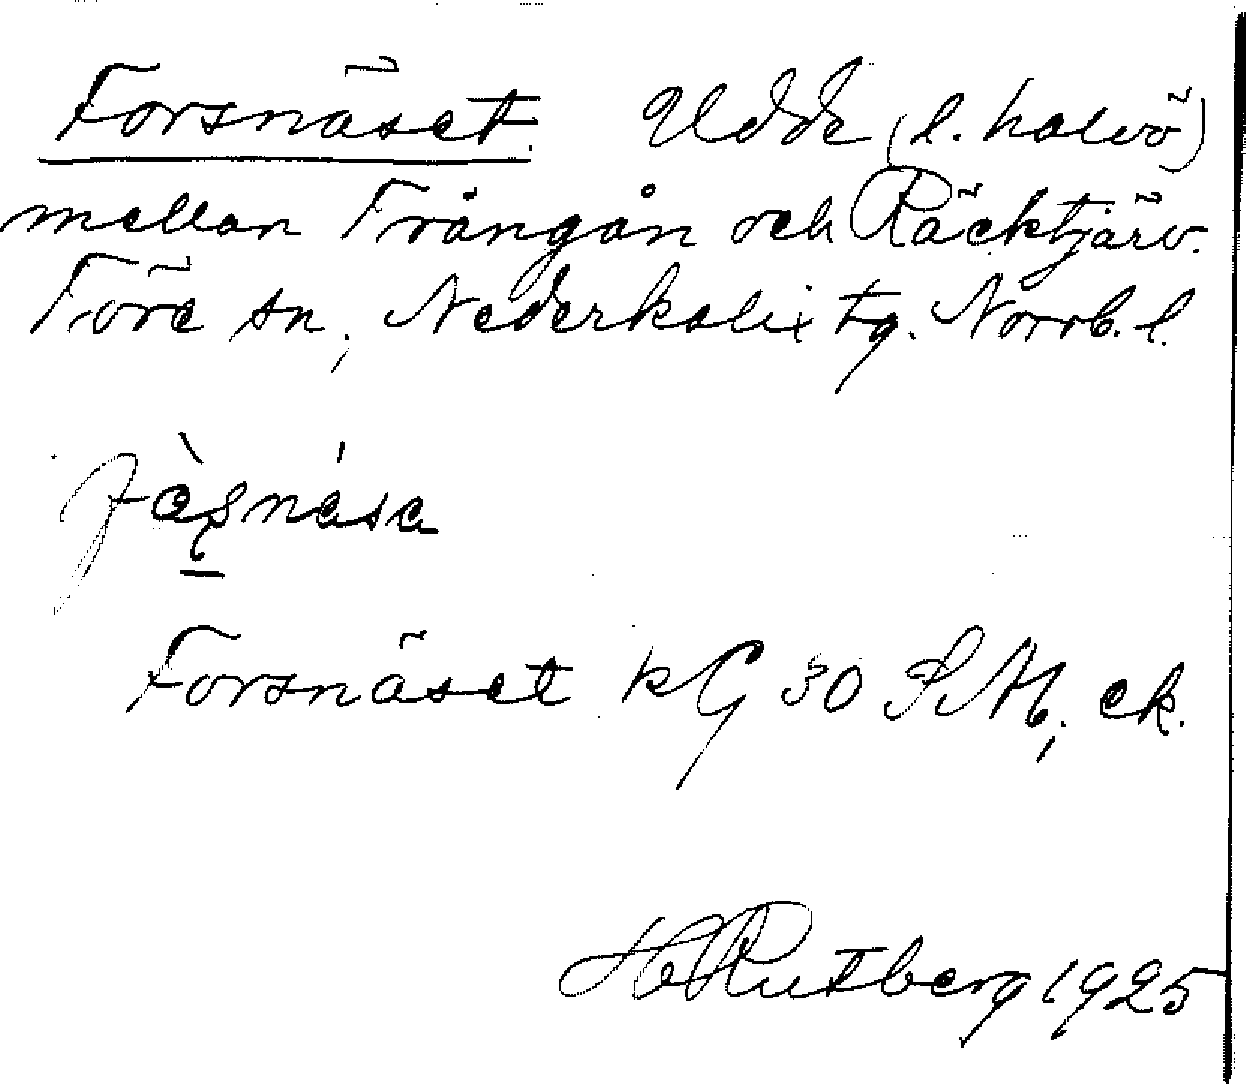 Forsnäset. Udde (l. halvö)
mellan Trångån och Räcktjärv.
Töre sn, Nederkalix tg. Norrb. l.
Forsnäset kG 30 S.M., ek.
H Rutberg 1925